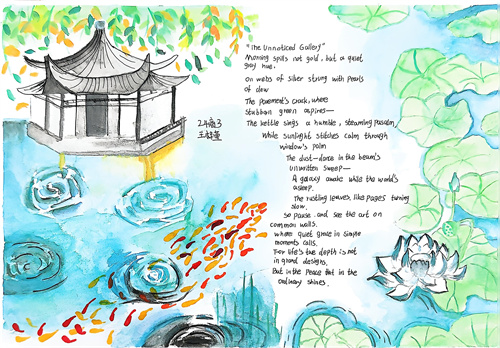 "The Unnoticed Gallery"
Morning spills not gold, but a quiet
grey hue.
On webs of silver strung with pearls
of dew
The Pavement's crack, where
stubborn green aspires—
The kettle sings a humble, steaming psalm,
While sunlight stitches calm through
window's palm
The dust-dance in the beam's
unwritten sweep—
A galaxy awake while the world's
asleep.
The rustling leaves, like pages turning
slow,
So pause and see the art on
common walls.
where quiet grace in simple
moments calls.
For life's true depth is not
in grand designs,
But in the Peace that in the
ordinary shines.